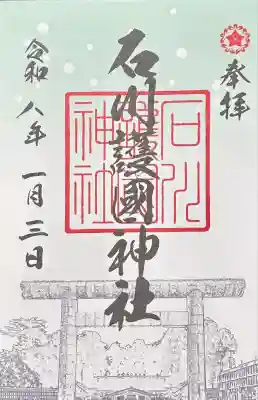 奉拝
石川護國神社
石川護國神社
令和八年一月三日